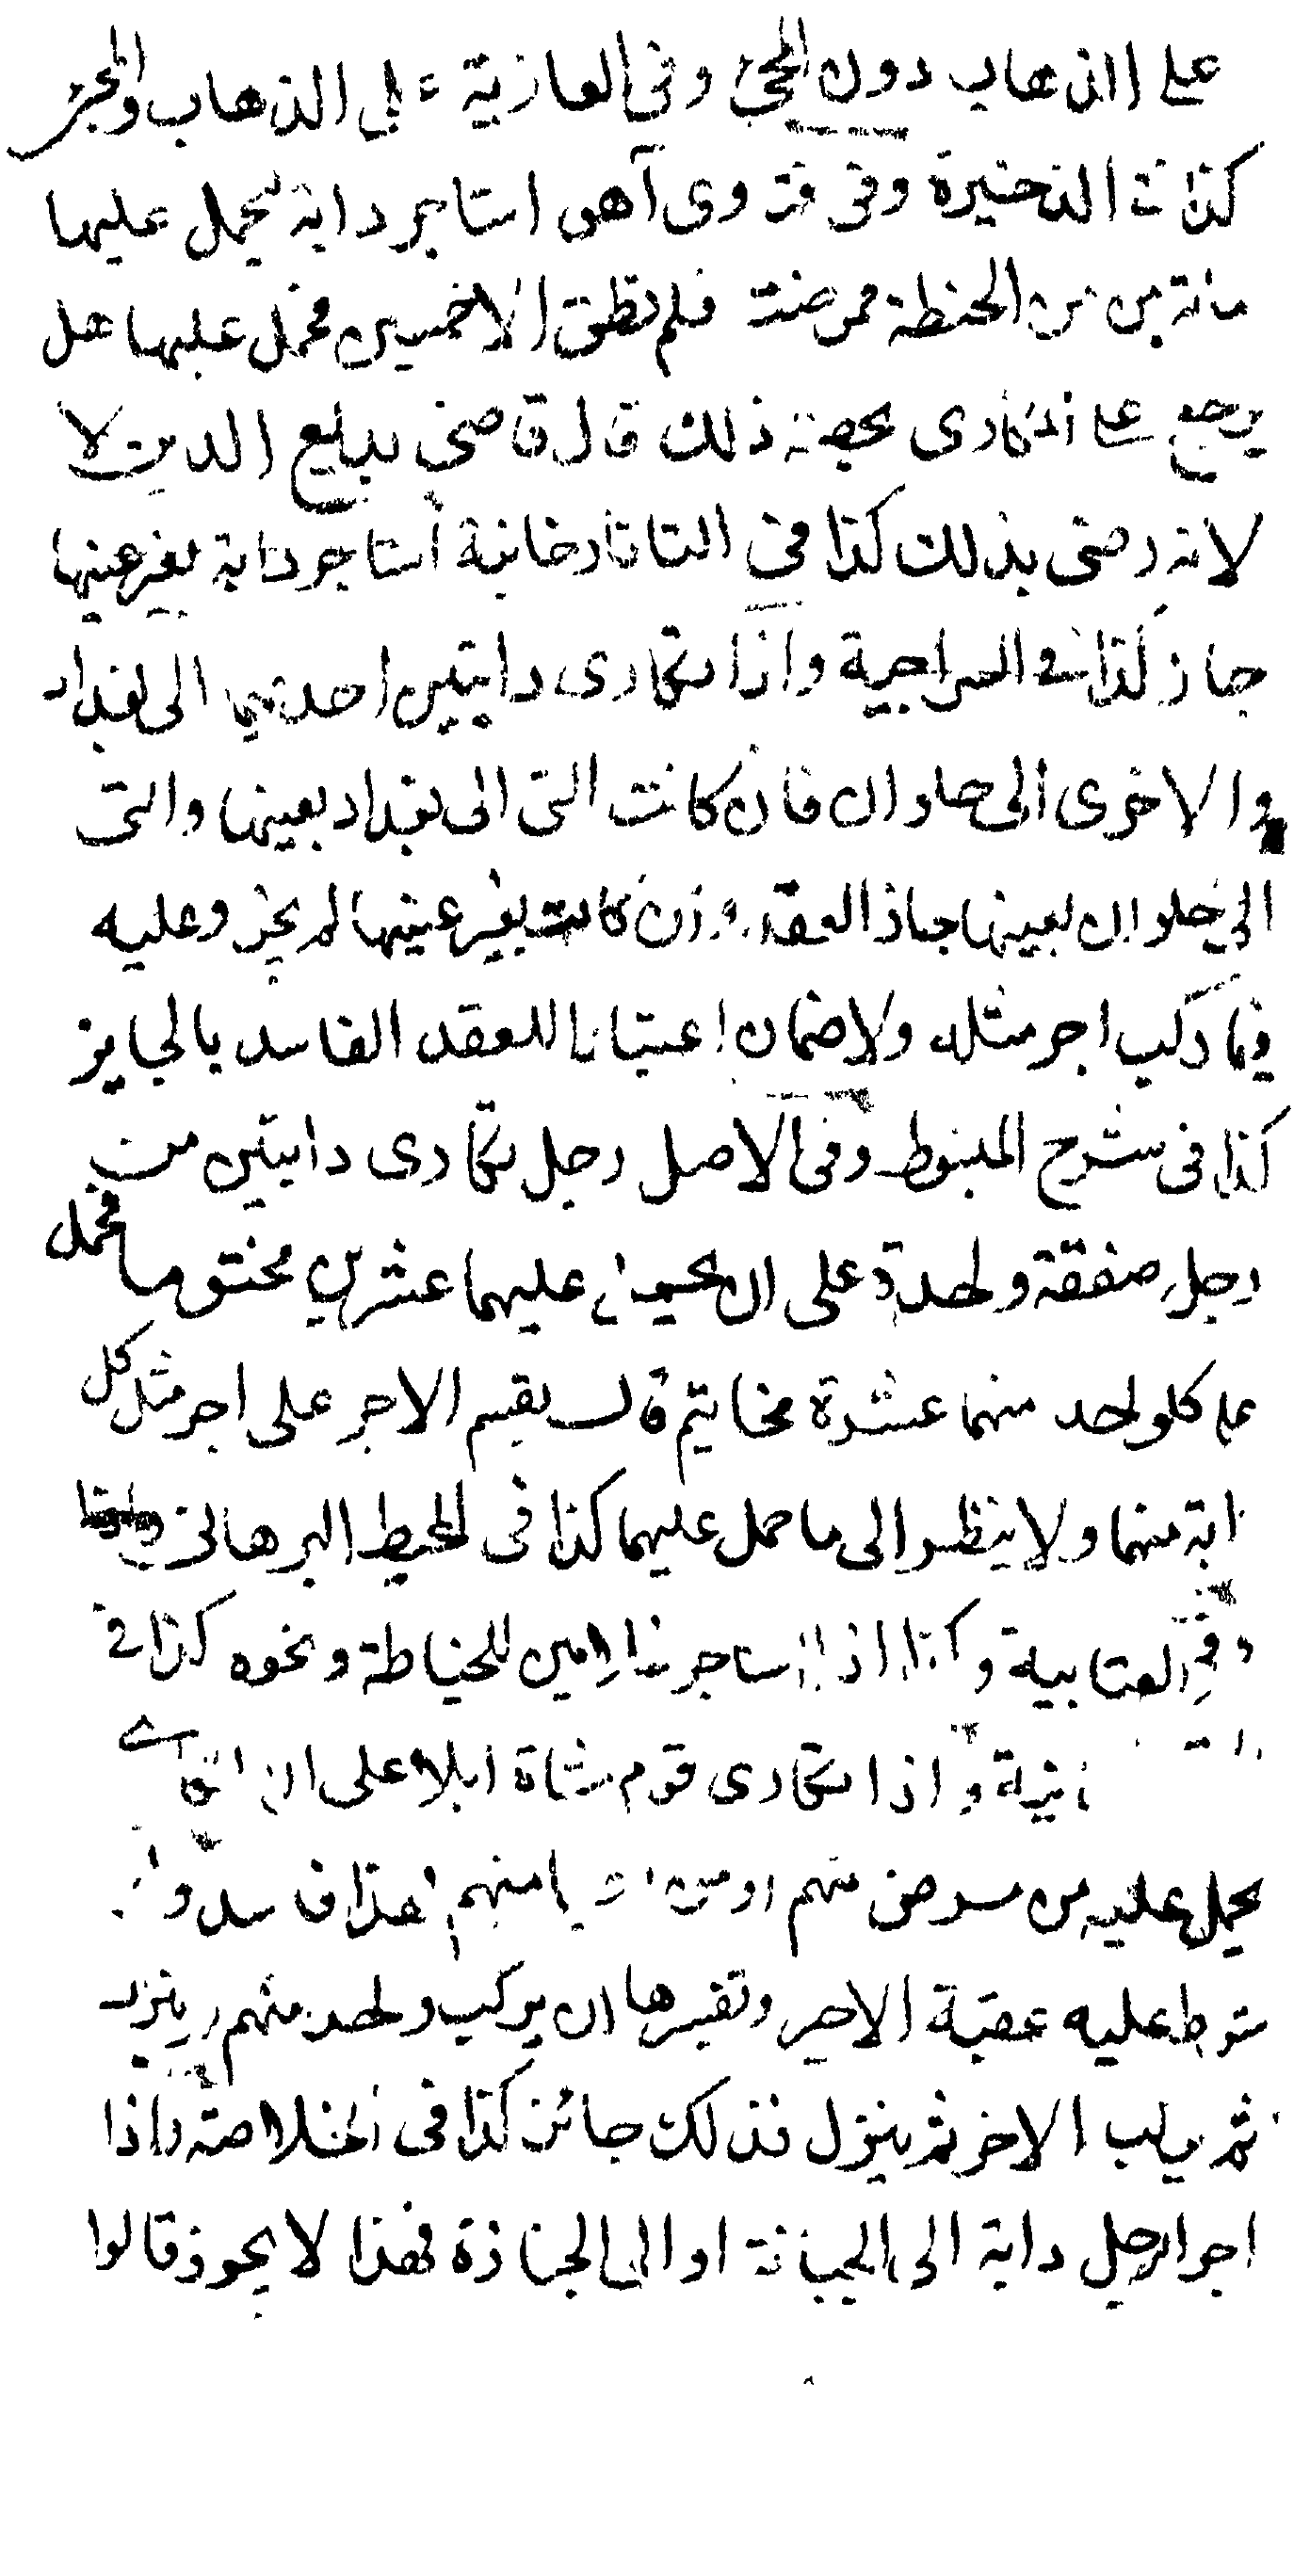 على الذهاب دون المجئ وفى العارية على الذهاب والمجئ
كذا فى الذخيرة وفى فتاوى آهو استاجر دابة ليحمل عليها
مائة من من الحنطة فمرضت فلم تطق الا خمسين فحمل عليها هل
يرجع على المكارى بحصة ذلك قال قاضى بديع الدين لا
لانه رضى بذلك كذا فى التاتارخانية استاجر دابة بغير عينها
جاز كذا فى السراجية واذا تكارى دابتين احديهما الى بغداد
والاخرى الى حلوان فان كانت التى الى بغداد بعينها والتى
الى حلوان بعينها جاز العقد وان كانت بغير عينها لم يجز وعليه
فيما ركب اجر مثله ولا ضمان اعتبارا للعقد الفاسد بالجايز
كذا فى شرح المبسوط وفى الاصل رجل تكارى دابتين من
رجل صفقة واحدة على ان يحمل عليهما عشرين مختوما فحمل
على كل واحد منهما عشرة مخاتيم قال يقسم الاجر على اجر مثل كل
دابة منهما ولا ينظر الى ما حمل عليهما كذا فى المحيط البرهانى
وفى العتابية وكذا اذا استاجر عبدين للخياطة ونحوه كذا فى
واذا تكارى قوم مشاة ابلا على ان المكارى
يحمل عليه من مرض منهم او من منهم فهذا فاسد وان
شرط عليه عقبة الاجير وتفسيرها ان يركب واحد منهم وينزل
ثم يركب الاخر ثم ينزل فذلك جائز كذا فى الخلاصة واذا
اجر الرجل دابة الى الجبانة او الى الجنازة فهذا لا يجوز قالوا